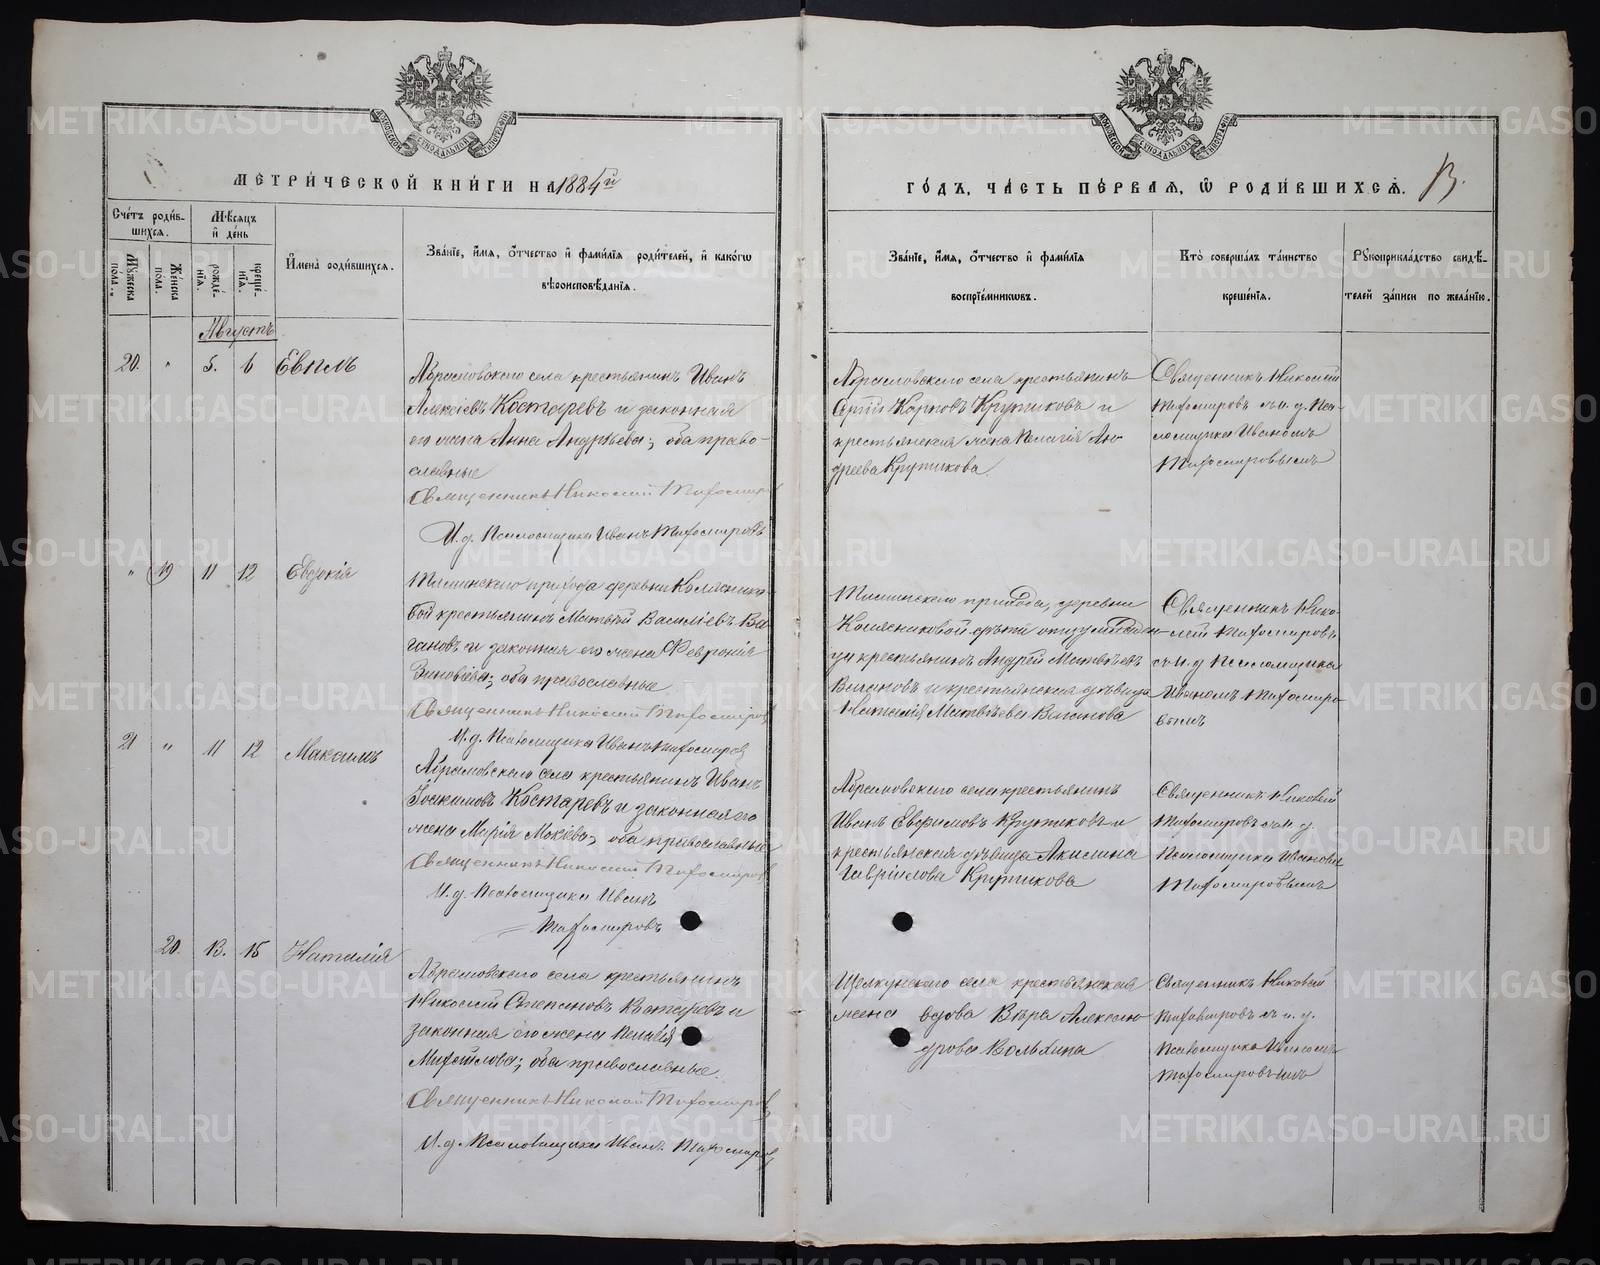 МОСКОВСКОЙ СѴНОДАЛЬНОЙ ТИПОГРАФІИ
МОСКОВСКОЙ СѴНОДАЛЬНОЙ ТИПОГРАФІИ
МЕТРИ́ЧЕСКОЙ КНИ́ГИ НА 1884й
ГО́ДЪ, ЧА́СТЬ ПЕ́РВАЯ, Ѿ РОДИ́ВШИХСЯ.
Сче́тъ роди́в-
шихся.
Мѣ́сяцъ
и҆ де́нь
Мꙋжеска
по́ла.
Же́нска
по́ла.
рожде́-
нїя.
креще́-
нїя.
И҆мена̀ роди́вшихся.
Зва́нїе, и҆́мя, ѻ҆́тчество и҆ фами́лїя роди́телей, и҆ како́гѡ
вѣроисповѣ́данїя.
Зва́нїе, и҆́мя, ѻ҆́тчество и҆ фами́лїя
воспрїе́мникѡвъ.
Кто̀ соверша́лъ та́инство
креще́нїя.
Рꙋкоприкла́дство свидѣ́-
телей за́писи по жела́нїю.
Августъ
20. " 5. 6 Евплъ
Абрамовскаго села крестьянинъ Иванъ
Алексіевъ Костаревъ и законная
его жена Анна Андрѣева; оба право-
славные
Священникъ Николай Тихомиров
И.д. Псаломщика Иванъ Тихомировъ
Абрамовскаго села крестьянинъ
Карповъ Крутиковъ и
крестьянская жена Пелагія Ан-
дреева Крутикова.
Священникъ Николай
Тихомировъ съ и. д. Пса-
ломщика Иваномъ
Тихомировымъ
" 19 11 12 Евдокія
прихода деревни Колясникo-
вой крестьянинъ Матвѣй Василіевъ Ва-
гановъ и законная его жена Феврония
Зиновіева; оба православные
Священникъ Николай Тихомиров
И.д. Псаломщика Иванъ Тихомиров
прихода, деревни
Колясниковой
крестьянинъ Андрей Матвѣевъ
Вагановъ и крестьянская дѣвица
Наталія Матвѣева Ваганова
Священникъ Нико-
лай Тихомировъ
съ и. д. Псаломщика
Иваномъ Тихомиро-
вымъ
21 " 11 12 Максимъ
Абрамовскаго села крестьянинъ Иванъ
Іоакимовъ Костаревъ и законная его
жена Марія Мокіева; оба православные
Священникъ Николай Тихомиров
И.д. Псаломщика Иванъ
Тихомировъ
Абрамовскаго села крестьянинъ
Иванъ Евфимовъ Крутиковъ и
крестьянская дѣвица Акилина
Гавріилова Крутикова
Священникъ Николай
Тихомировъ съ и. д.
Псаломщика Иваномъ
Тихомировымъ
20. 13. 15 Наталія
Абрамовскаго села крестьянинъ
Николай Степановъ Костаревъ и
законная его жена Пелагія
Михайлова; оба православные.
Священникъ Николай Тихомиров
И.д. Псаломщика Иванъ Тихомиров
Щелкунскаго села крестьянская
жена вдова Вѣра Алексан-
дрова Вольхина
Священникъ Николай
Тихомировъ съ и. д.
Псаломщика Иваномъ
Тихомировымъ
METRIKI.GASO-URAL.RU